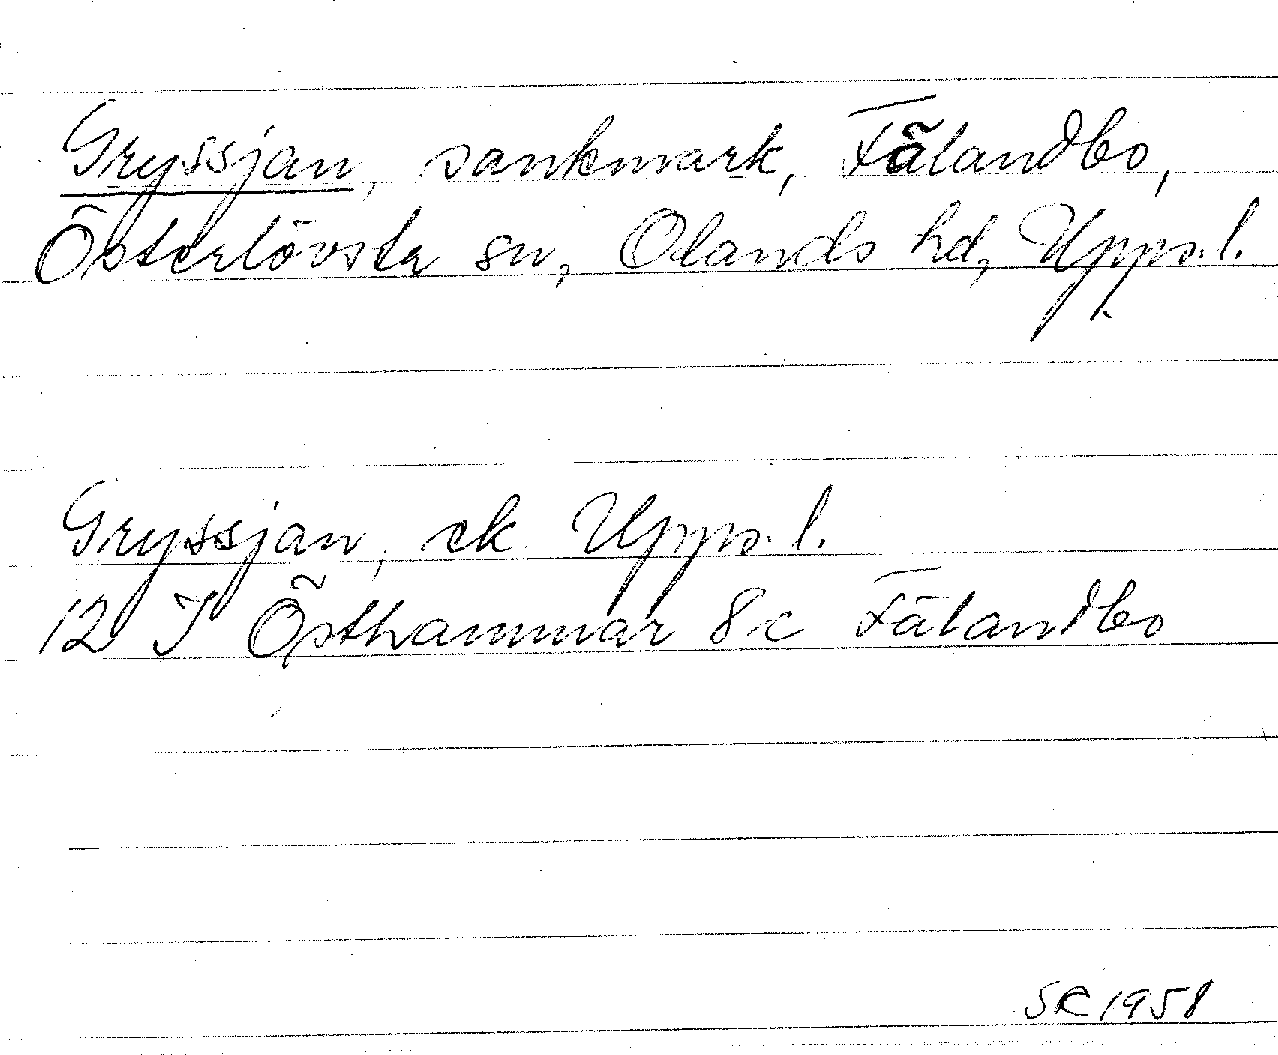 Gryssjan, sankmark, Fälandbo,
Österlövsta sn, Olands hd, Upps.l.
Gryssjan, ek Upps.l.
12 I Östhammar 8c Fälandbo
SE 1958